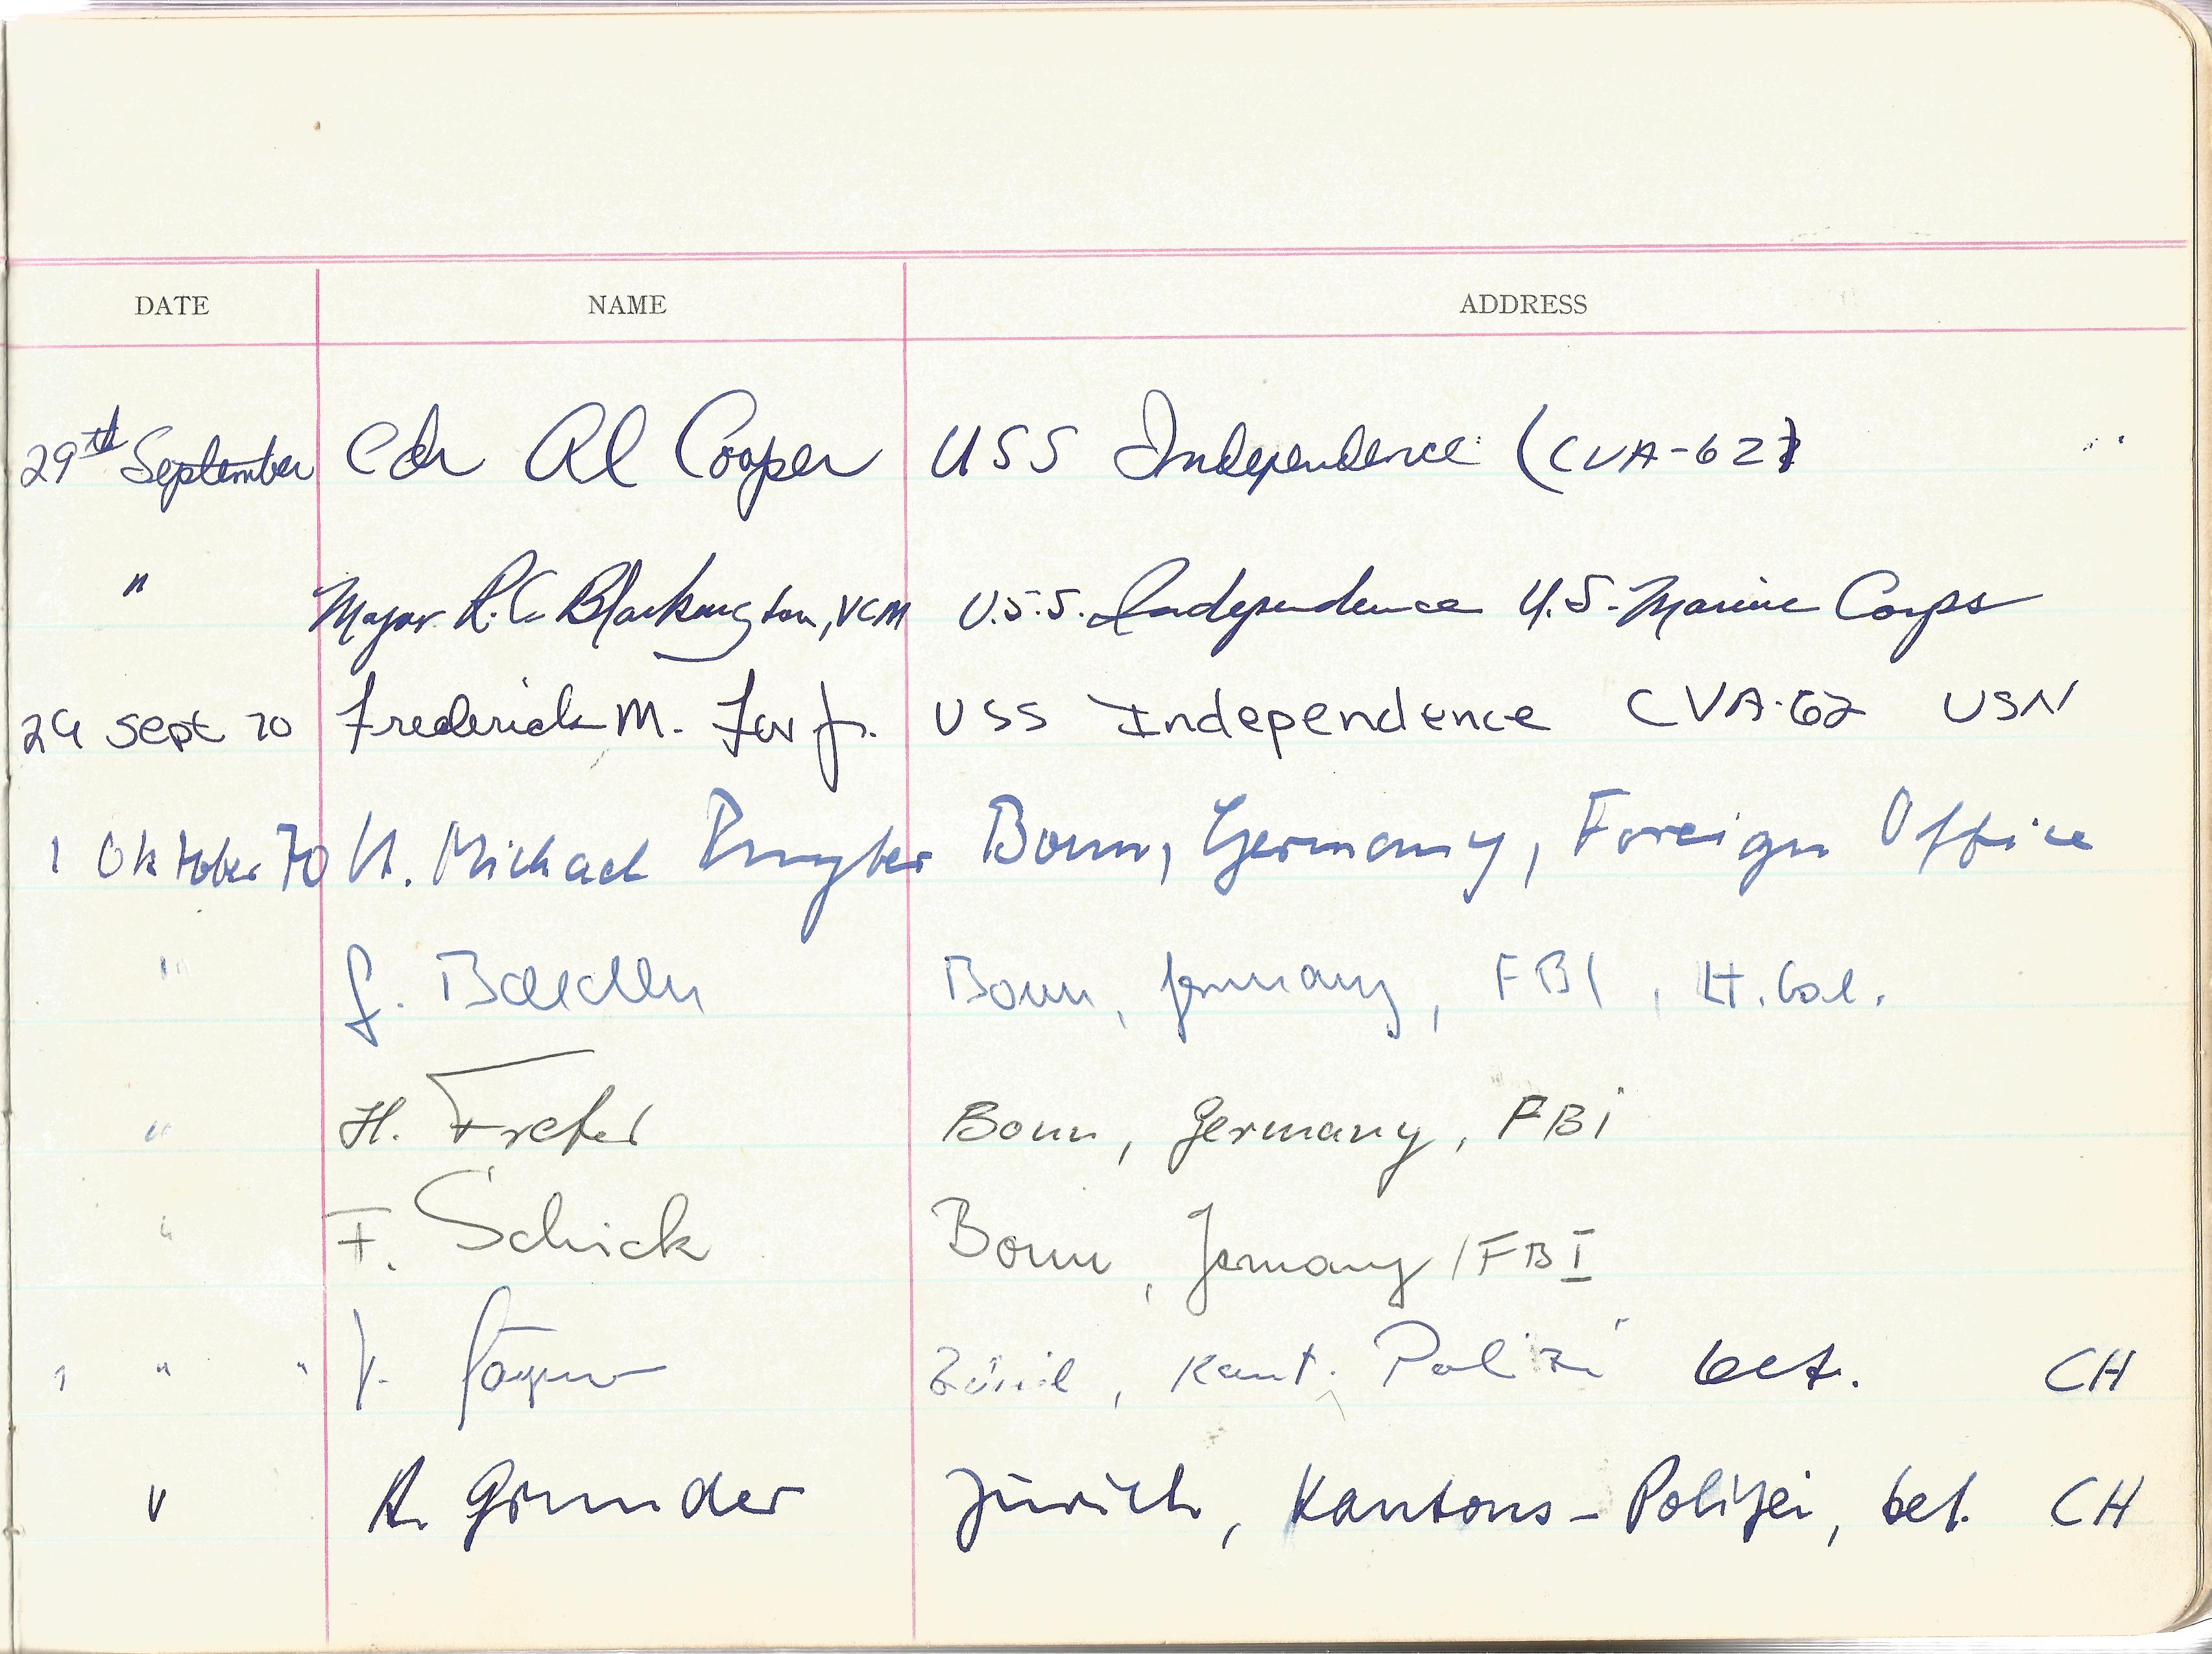 DATE NAME ADDRESS
29th September Cdr Al Cooper USS Independence (CVA-62)
" Major R.C. Blackington, USS Independence U.S. Marine Corps
29 Sept 70 Frederick M. Jr. USS Independence CVA-62 USN
1 Oktober 70 Michael Bonn, Germany, Foreign Office
" Bonn, Germany, FBI, Lt. Col.
" H. Bonn, Germany, FBI
" F. Schick Bonn, Germany / FBI
" " " Zürich, Kant. Polizei Det. CH
" Grunder Zürich, Kantons-Polizei, Det. CH